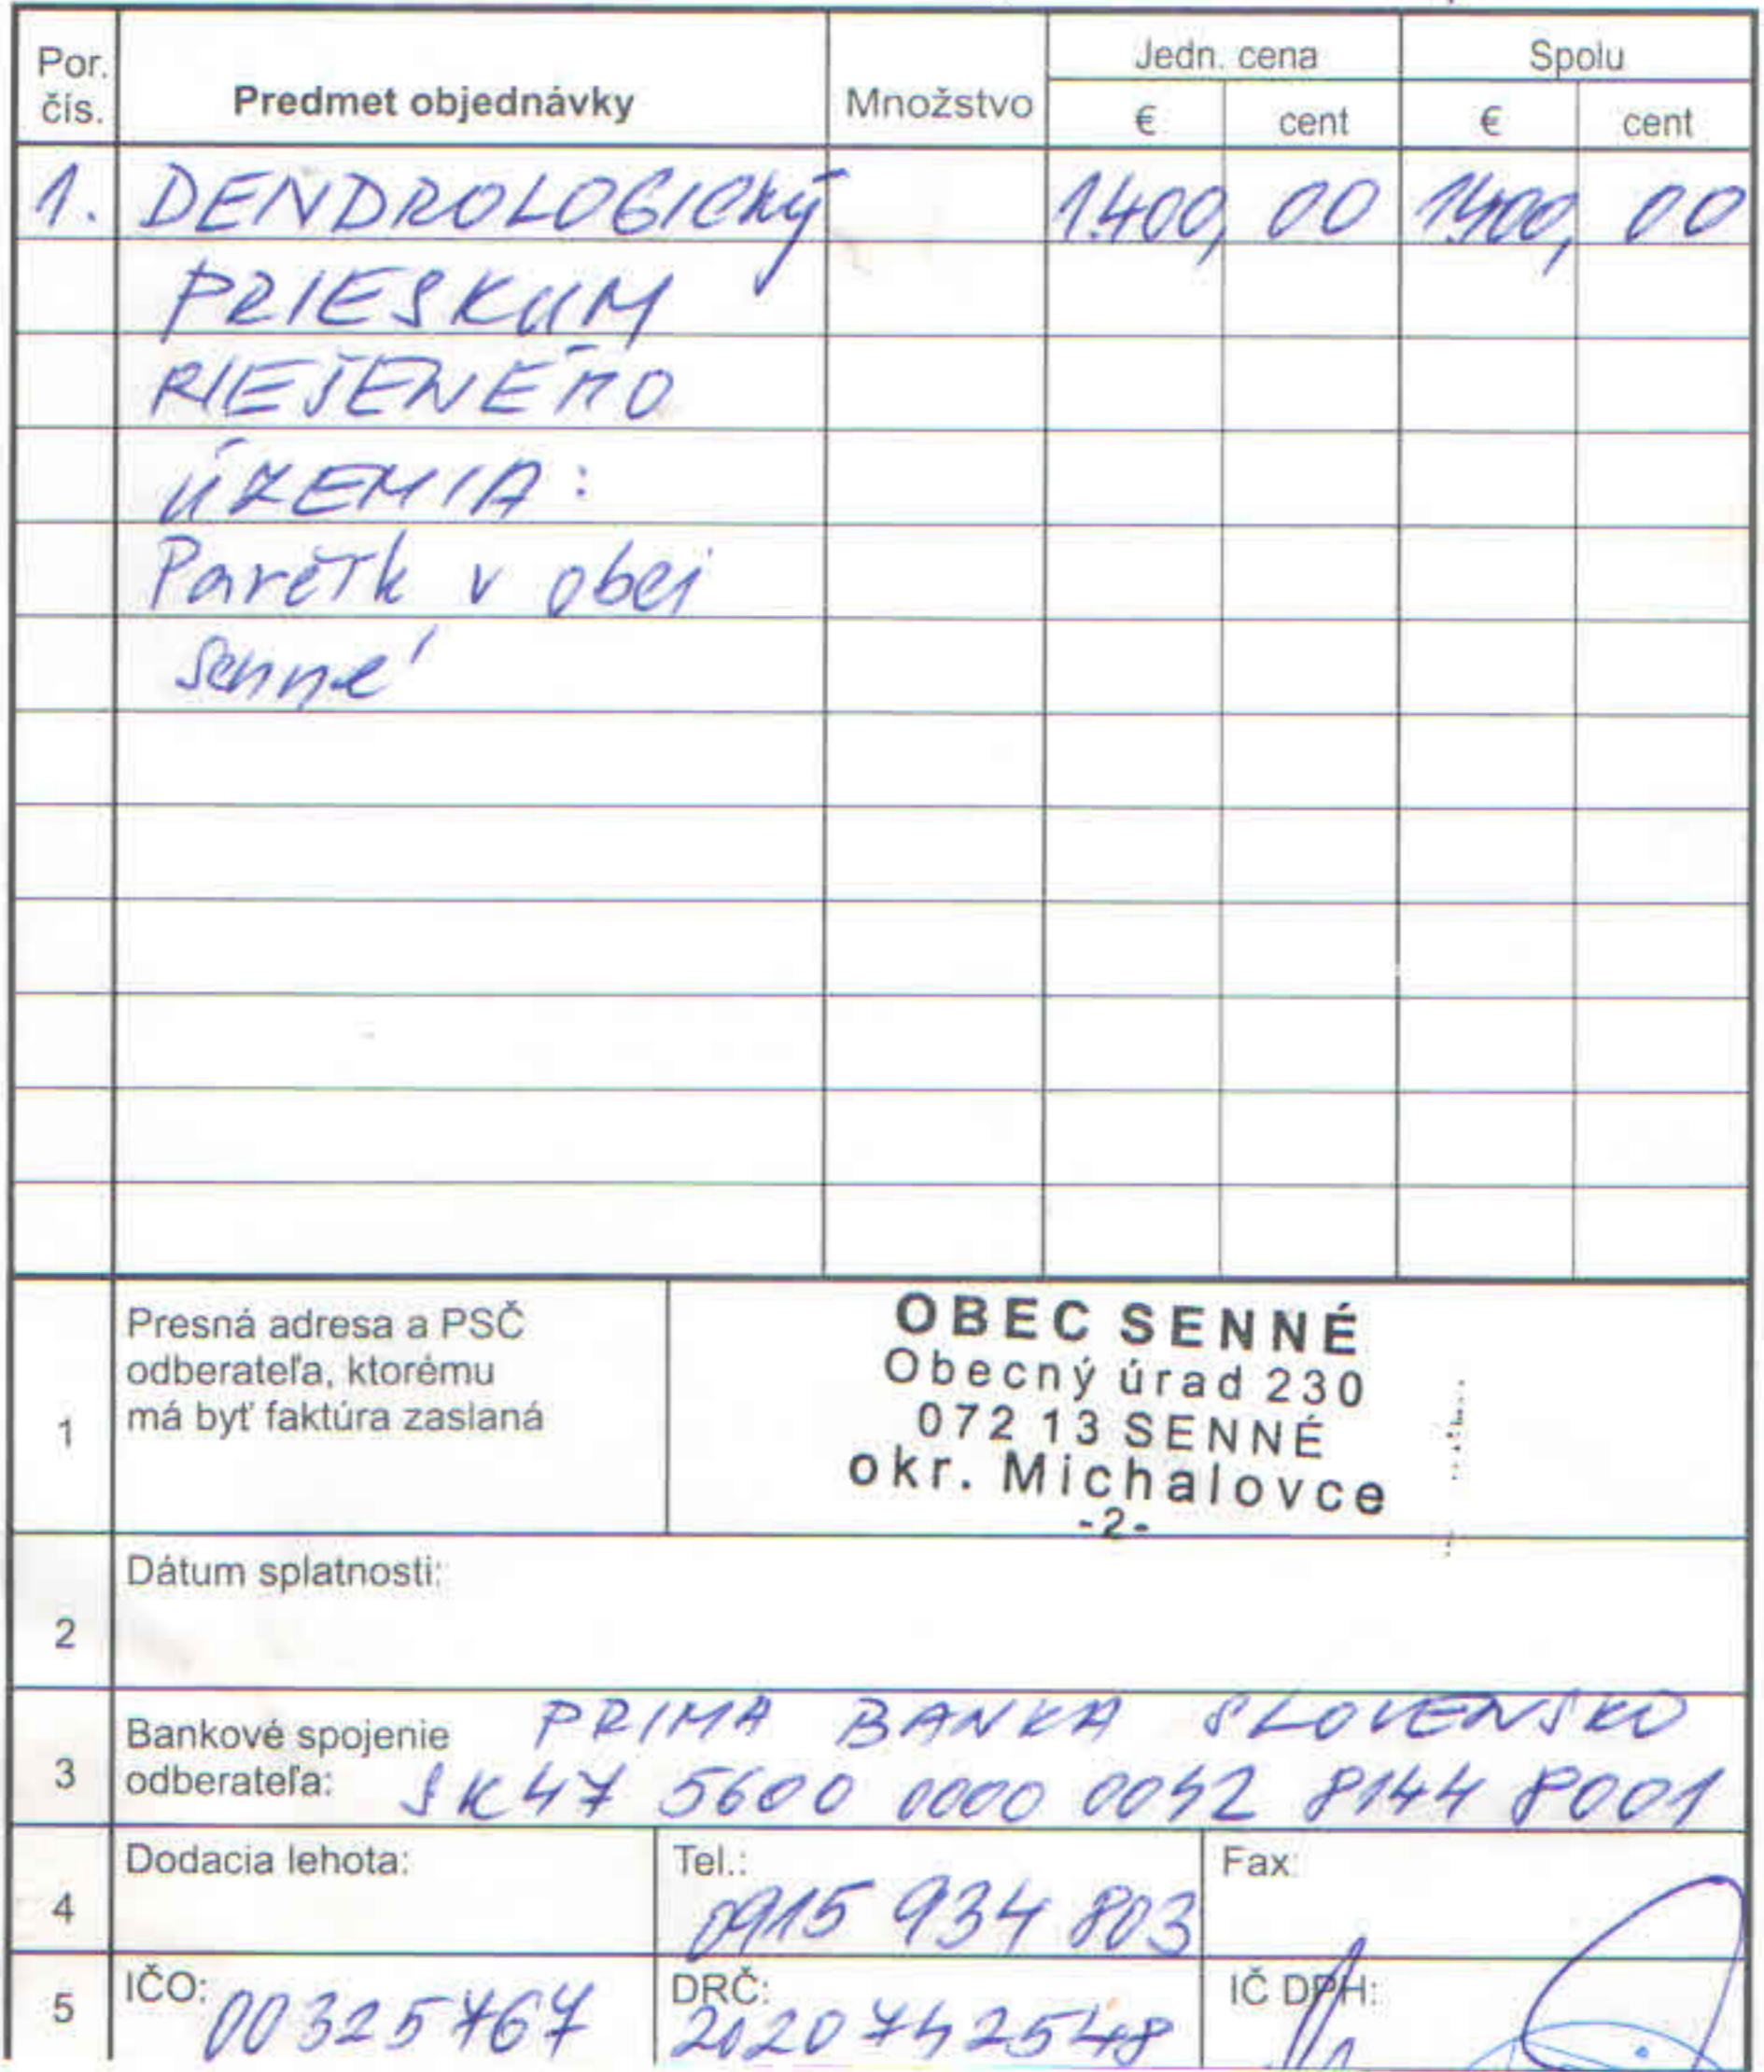 Por. čís. Predmet objednávky Množstvo Jedn. cena Spolu
€ cent € cent
1. DENDROLOGICký 1.400, 00 1.400, 00
PRIESKUM
RIEŠENÉHO
ÚZEMIA:
v obci
Senné
1 Presná adresa a PSČ
odberateľa, ktorému
má byť faktúra zaslaná
OBEC SENNÉ
Obecný úrad 230
072 13 SENNÉ
okr. Michalovce
-2-
2 Dátum splatnosti:
3 Bankové spojenie PRIMA BANKA SLOVENSKO
odberateľa: SK47 5600 0000 0042 8144 8001
4 Dodacia lehota: Tel.: 0915 934 803 Fax:
5 IČO: 00325767 DRČ: 2020742548 IČ DPH: